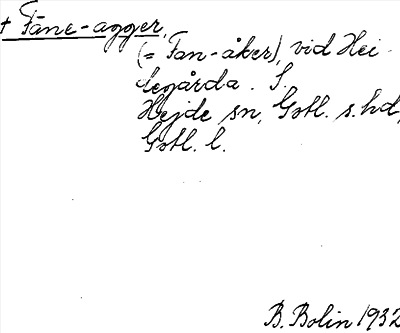 † Fäne-agger,
(= Fan-åker), vid Hei-
legårda. S.
Hejde sn, Gotl. s. hd,
Gotl. l.
B. Bolin 1932